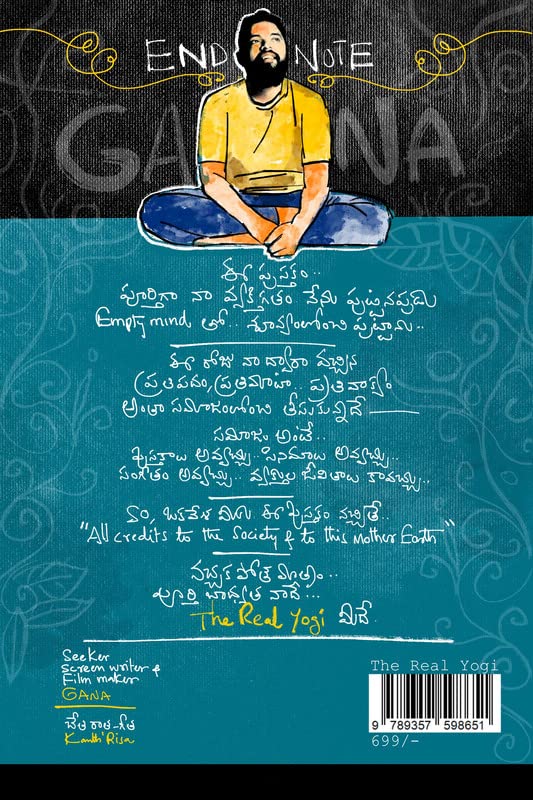 END NOTE
GANA
ఈ పుస్తకం..
పూర్తిగా నా వ్యక్తిగతం నేను పుట్టినపుడు
Empty mind తో.. శూన్యంలోంచి పుట్టాను..
ఈ రోజు నా ద్వారా వచ్చిన
ప్రతిపదం, ప్రతిమాటా.. ప్రతి వాక్యం
అంతా సమాజంలోంచి తీసుకున్నదే
సమాజం అంటే..
పుస్తకాలు అవ్వచ్చు. సినిమాలు అవ్వచ్చు..
సంగీతం అవ్వచ్చు.. వ్యక్తుల జీవితాలు కావచ్చు..
సో, ఒకవేళ మీకు ఈ పుస్తకం నచ్చితే..
"All credits to the Society & to this Mother Earth"
నచ్చక పోతే మాత్రం..
పూర్తి బాధ్యత నాదే...
The Real Yogi మీదే.
Seeker
Screen writer &
Film maker
GANA
చేతి రాత-గీత
Kanthi Risa
The Real Yogi
9 789357 598651
699/-